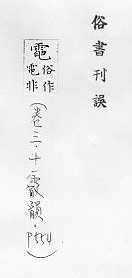 俗書刊誤
電
俗作
電非
(卷三·十一霰韻·P554)